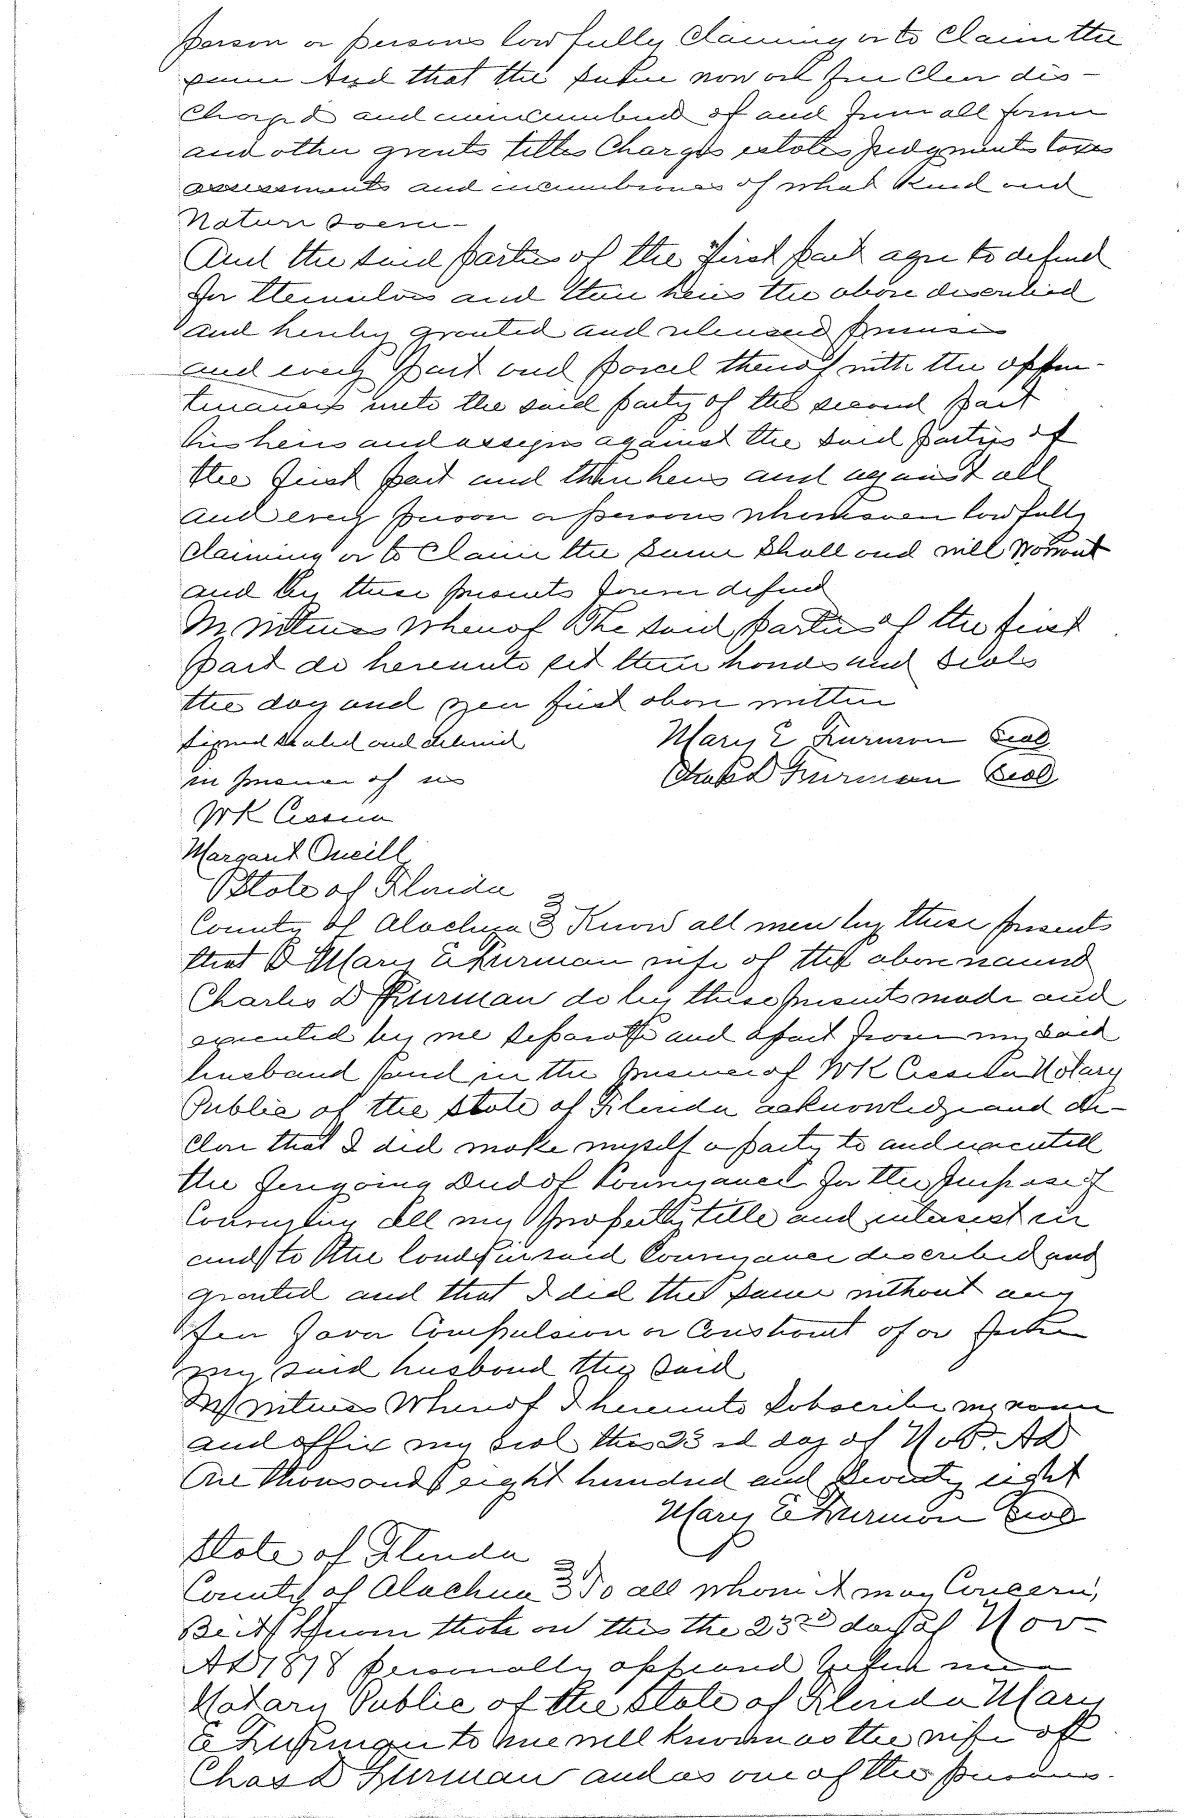 person or persons lawfully claiming or to Claim the
same And that the same now are free Clear dis-
Charged and unincumbered of and from all former
and other grants titles Charges estates judgments taxes
assessments and incumbrances of what kind and
Nature soever-
And the said parties of the first part agree to defend
for themselves and their heirs the above described
and hereby granted and released premises
and every part and parcel thereof with the appur-
tenances unto the said party of the second part
his heirs and assigns against the said parties of
the first part and their heirs and against all
and every person or persons whomsoever lawfully
claiming or to Claim the same shall and will warrant
and by these presents forever defend
In witness whereof The said parties of the first
part do hereunto set their hands and seals
the day and year first above written
signed sealed and delivered Mary E Furman Seal
in presence of us Chas D Furman Seal
WK Cessna
Margaret Oneill
State of Florida
County of Alachua } Know all men by these presents
that I Mary E Furman wife of the above named
Charles D Furman do by these presents made and
executed by me separate and apart from my said
husband and in the presence of WK Cessna Notary
Public of the State of Florida acknowledge and de-
clare that I did make myself a party to and executed
the foregoing Deed of Conveyance for the purpose of
Conveying all my property title and interest in
and to the lands in said Conveyance described and
granted and that I did the same without any
fear favor Compulsion or Constraint of or from
my said husband the said
In witness Whereof I hereunto subscribe my name
and affix my seal this 23rd day of Nov. AD
One thousand eight hundred and seventy eight
Mary E Furman Seal
State of Florida
County of Alachua } To all whom it may Concern,
Be it Known that on this the 23rd day of Nov-
AD 1878 personally appeared before me a
Notary Public of the State of Florida Mary
E Furman to me well known as the wife of
Chas D Furman and as one of the persons.